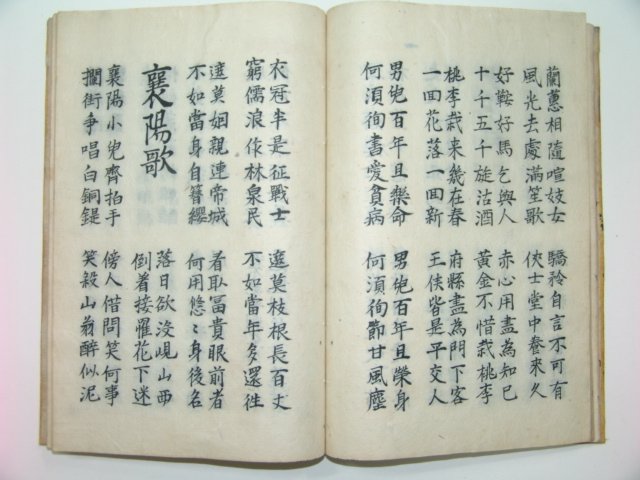 蘭蕙相隨喧妓女
風光去處滿笙歌
驕矜自言不可有
俠士堂中養來久
好鞍好馬乞與人
十千五千旋沽酒
赤心用盡為知己
黃金不惜栽桃李
桃李栽来幾在春
一囬花落一囬新
府縣盡為門下客
王侯皆是平交人
男兒百年且樂命
何須徇書愛貧病
男兒百年且榮身
何須徇節甘風塵
衣冠半是征戰士
窮儒浪作林泉民
遮莫枝根長百丈
不如當年多還往
遮莫姻親連帝城
不如當身自簪纓
看取冨貴眼前者
何用悠〻身後名
襄陽歌
落日欲沒峴山西
倒着接罹花下迷
襄陽小兒齊拍手
攔街爭唱白銅鍉
傍人借問笑何事
笑殺山翁醉似泥